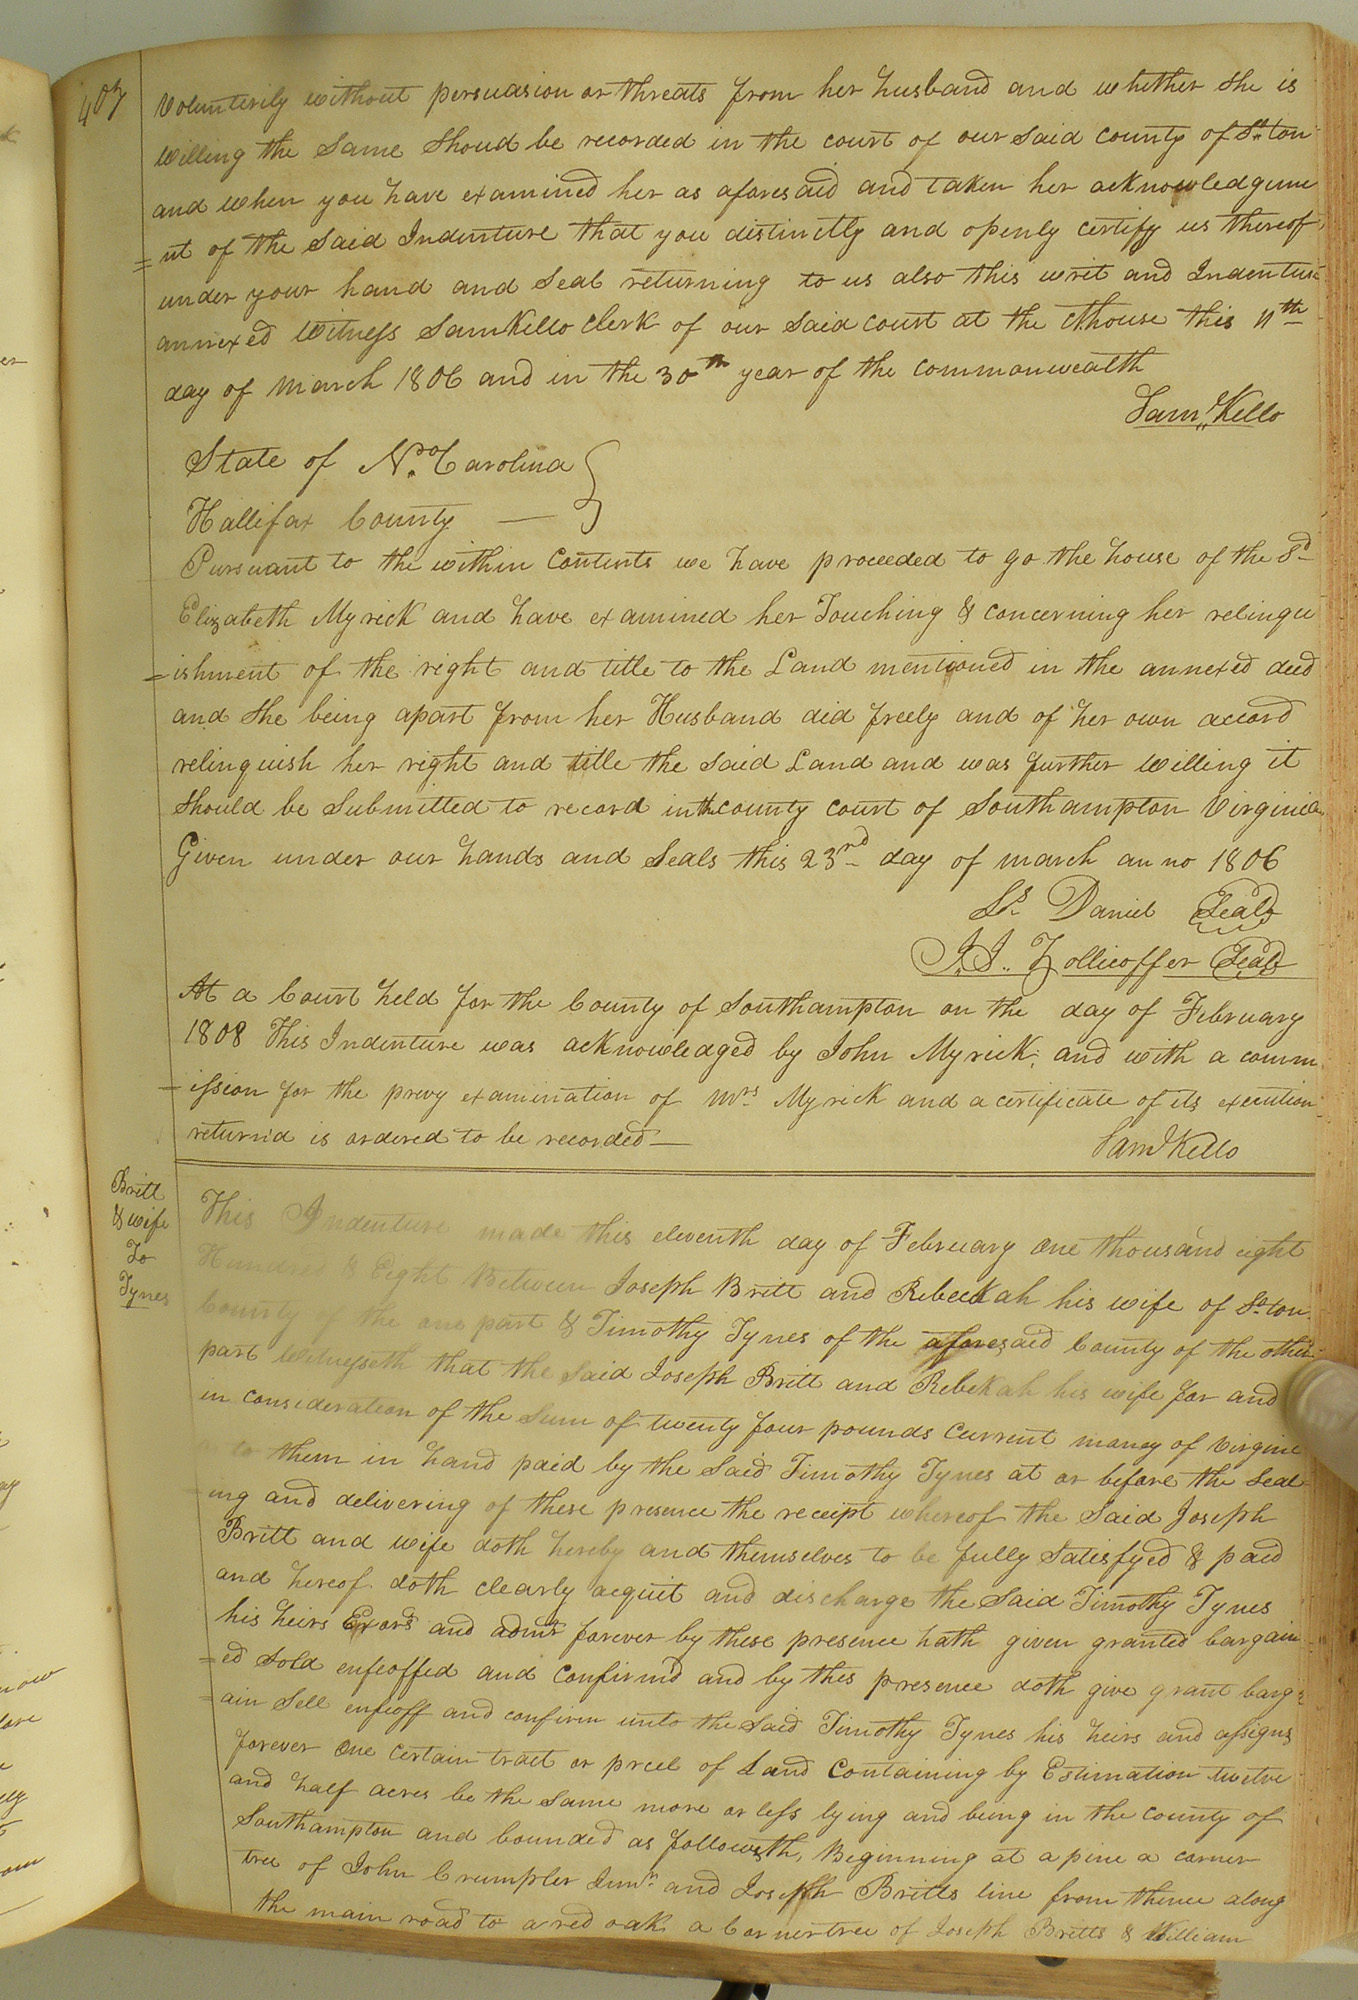 407
Voluntirily without persuasion or threats from her husband and whether she is
willing the same shoud be recorded in the court of our said county of So.ton
and when you have examined her as aforesaid and taken her acknowledgeme
=nt of the said Indenture that you distinctly and openly certify us thereof
under your hand and seal returning to us also this writ and Indenture
annexed Witness Sam Kello Clerk of our said court at the Cthouse this 11th
day of march 1806 and in the 30th year of the commonwealth
Saml Kello
State of No. Carolina
Hallifax County —
Pursuant to the within Contents we have proceeded to go the house of the Sd
Elizabeth Myrick and have examined her Touching & concerning her relinqu
=ishment of the right and title to the Land mentioned in the annexed deed
and she being apart from her Husband did freely and of her own accord
relinquish her right and title the said Land and was further willing it
should be submitted to record in the county court of Southampton Virginia
Given under our hands and seals this 23rd day of march anno 1806
Ls. Daniel Seal
J. J. Zollicoffer Seal
At a Court held for the County of Southampton on the day of February
1808 This Indenture was acknowledged by John Myrick, and with a comm
=ission for the privy examination of Mrs Myrick and a certificate of its execution
return'd is ordered to be recorded —
Saml Kello
Britt
& wife
To
Tynes
This Indenture made this eleventh day of February one thousand eight
Hundred & Eight Between Joseph Britt and Rebeckah his wife of So.ton
County of the one part & Timothy Tynes of the aforesaid County of the other
part witnesseth that the said Joseph Britt and Rebekah his wife for and
in consideration of the sum of twenty four pounds Current money of Virgini
a to them in hand paid by the said Timothy Tynes at or before the seal
=ing and delivering of these presence the receipt whereof the said Joseph
Britt and wife doth hereby and themselves to be fully satisfyed & paid
and hereof doth clearly acquit and discharge the said Timothy Tynes
his heirs Exors and admrs forever by these presence hath given granted bargain
=ed sold enfeoffed and confirmd and by thes presence doth give grant barg=
=ain sell enfeoff and confirm unto the said Timothy Tynes his heirs and assigns
forever one certain tract or prcel of Land Containing by Estimation twelve
and half acres be the same more or less lying and being in the county of
Southampton and bounded as followeth, Beginning at a pine a corner
tree of John Crumpler Junr. and Joseph Britts line from thence along
the main road to a red oak a Corner tree of Joseph Britts & William